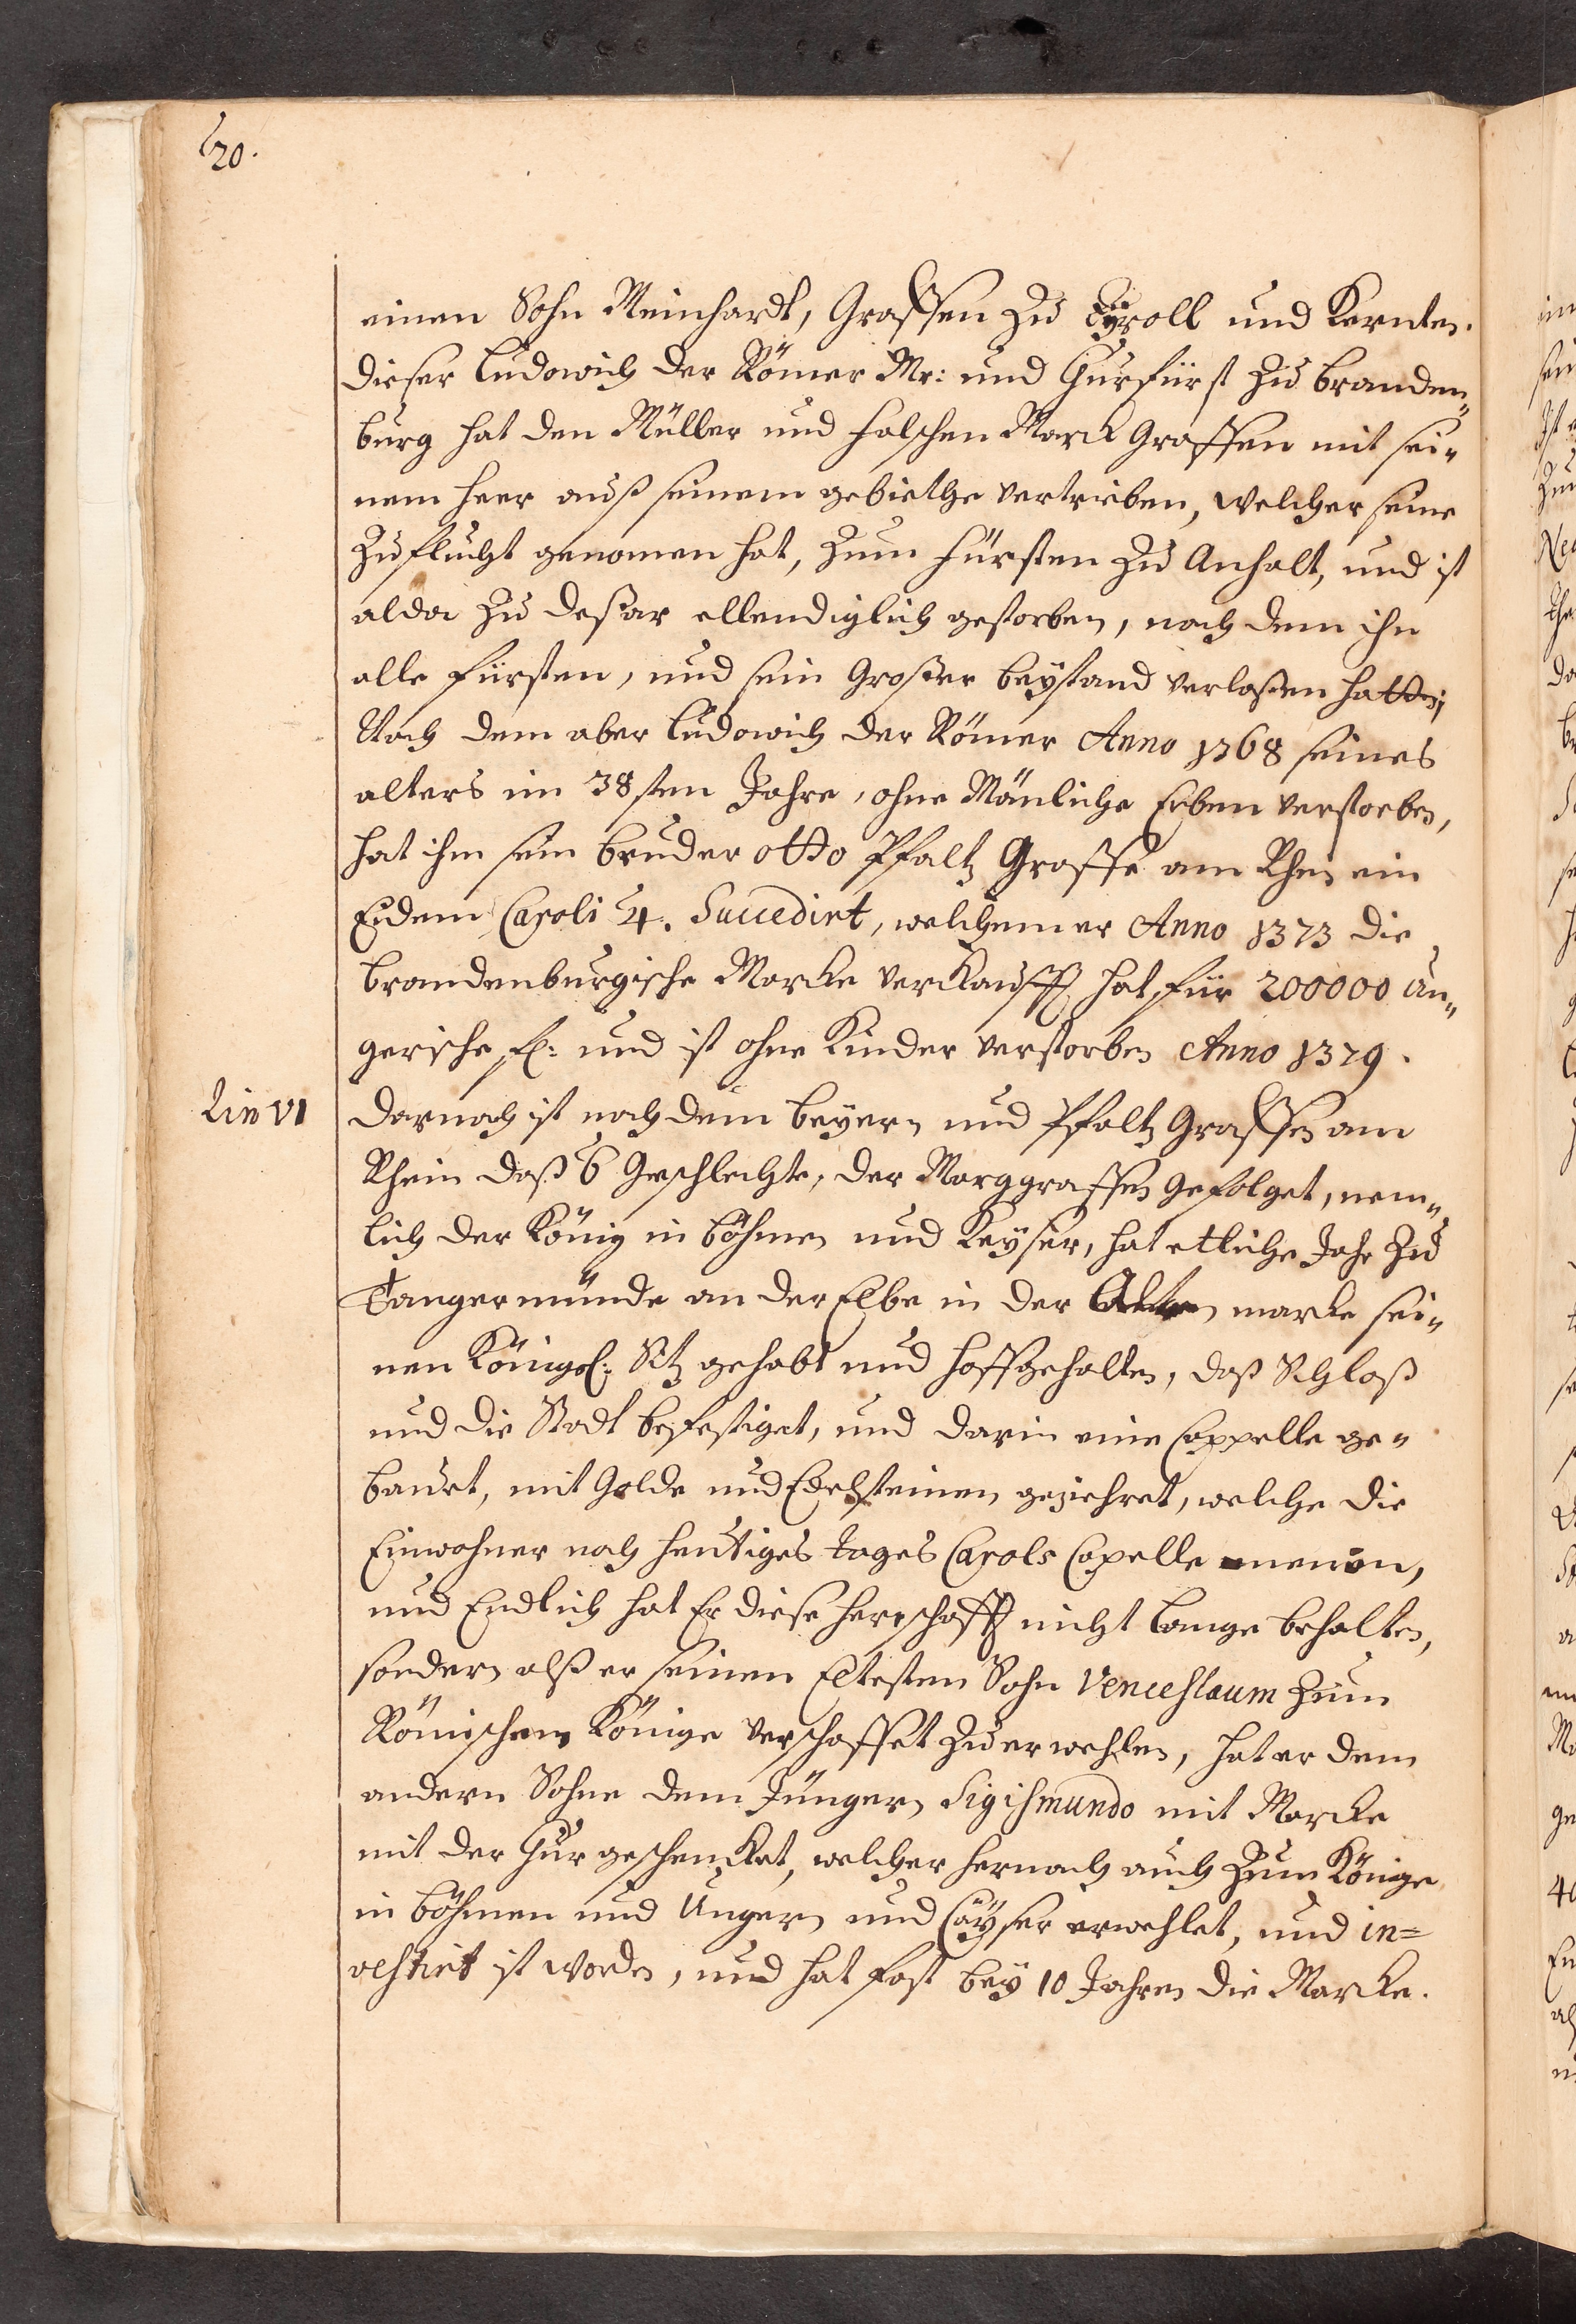 20.
einen Sohn Meinhardt, Graffen zu Tÿroll und Kernten.
dieser Ludowich der Römer Mr: und Churfürst zu branden„
burg hat den Müller und falschen Marck Graffen mit sei„
nem heer auß seinem gebiethe vertrieben, welcher seine
zuflucht genomen hat, zum fürsten zu Anhalt, und ist
alda zu deßar ellendiglich gestorben, nach dem ihn
alle fürsten, und sein Großer beÿstand verlaßen hatte;
Nach dem aber Ludowich der Römer Anno 1368 seines
alters im 38sten Jahre, ohne Mänliche Erben verstorben,
hat ihm sein bruder otto Pfaltz Graffe am Rhein ein
Eidem Caroli 4. Succedirt, welchem er Anno 1373 die
brandenburgische Marcke verkaufft hat für 200000 Un„
gerische fl: und ist ohne Kinder verstorben Anno 1379.
Lin VI
darnach ist nach dem beyern und Pfaltz Graffen am
Rhein daß 6 Geschlechte, der Marggraffen gefolget, nem„
lich der König in böhmen und Keÿser, hat etliche Jahr zu
Tangermünde an der Elbe in der Alten marcke sei„
nen Königl: Sitz gehabt und hoffgehalten, daß Schloß
und die Stadt befestiget, und darin eine Cappelle ge„
bauet, mit Golde und Edelsteinen geziehret, welche die
Einwohner noch heutiges tages Carols Capelle nennen,
und Endlich hat Er diese herrschafft nicht lange behalten,
sondern alß er seinen Eltesten Sohn Venceslaum zum
Römischen Könige verschaffet zu erwehlen, hat er dem
andern Sohne dem Jüngern Sigismundo mit Marcke
mit der Chur geschencket, welcher hernach auch zum Könige
in böhmen und Ungern und Cäÿser erwehlet, und in=
vestirt ist worden, und hat fast beÿ 10 Jahren die Marcke.